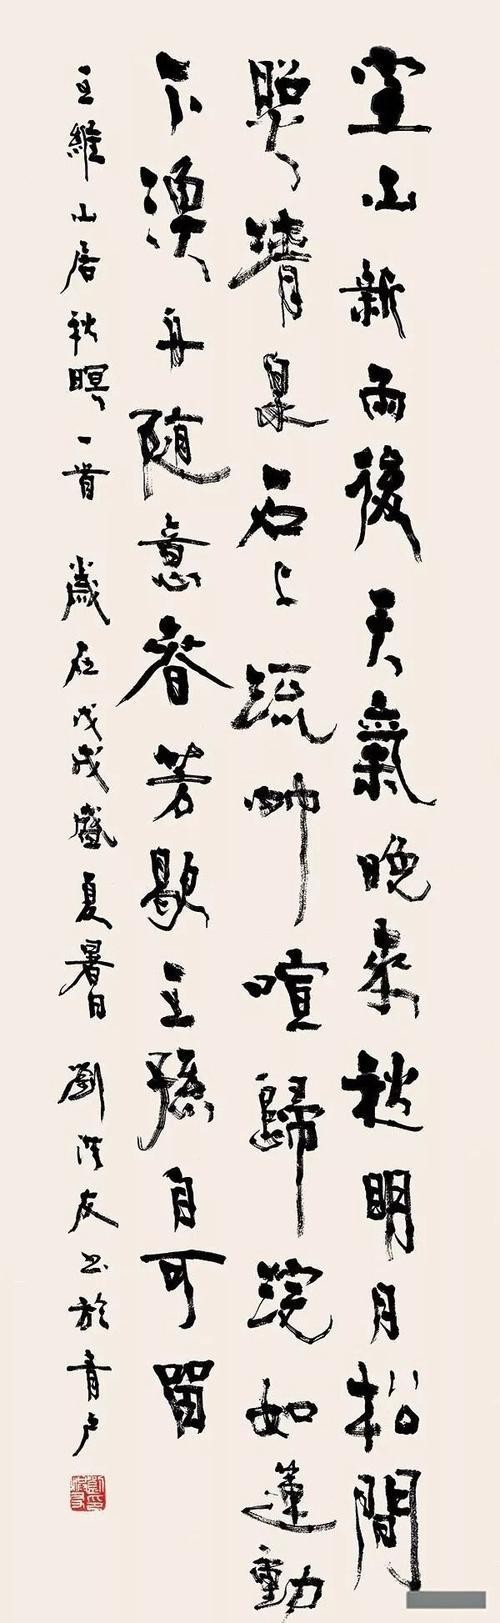 空山新雨後天氣晚來秋明月松間
照清泉石上流竹喧歸浣如蓮動
下漁舟隨意春芳歇王孫自可留
王維山居秋暝一首 歲在戊戌盛夏暑日 劉洪友書於青戶